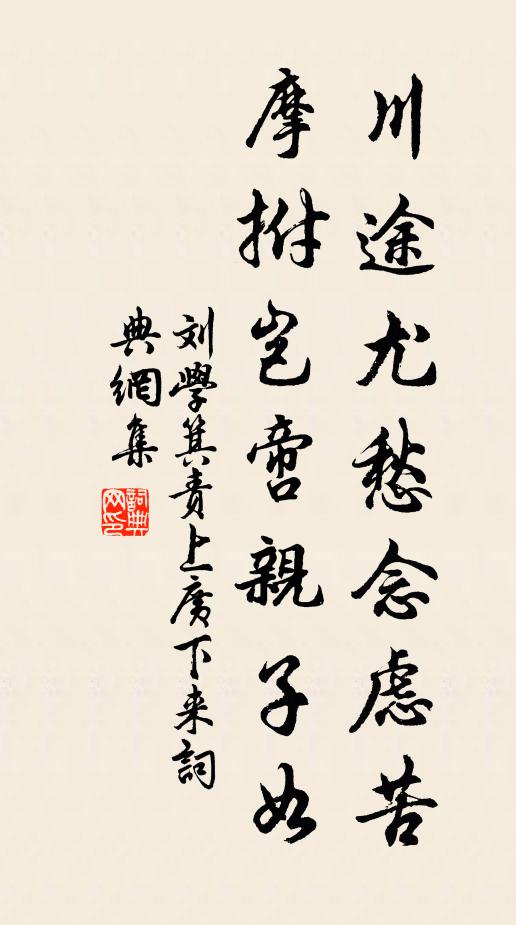 川途尤愁念慮苦
摩拊豈啻親子如
刘學箕責上廣下来詞
典網集
詞典网印